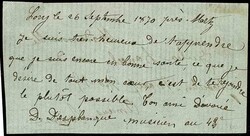 Lony le 26 Septembre 1870 près Metz
je suis très heureux de t'apprendre
que je suis encore en bonne santé ce que je
désire de tout mon cœur c'est de te
le plutôt possible ton ami dévoué
D. musicien au 48e